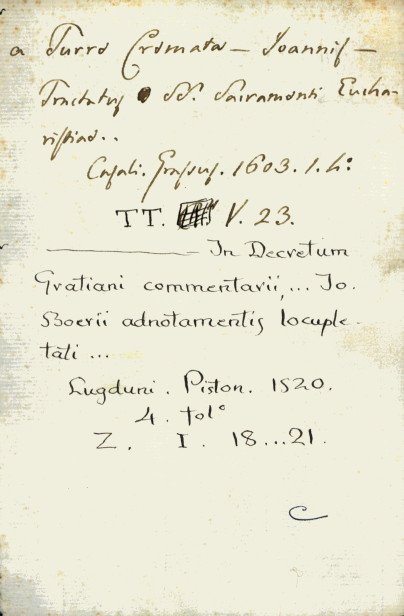 a Turre Cremata – Joannis –
Tractatus SS. Sacramenti Eucha-
ristiae..
Casali. Grassus. 1603. 1. 4º
TT. V. 23.
— In Decretum
Gratiani commentarii, ... Jo.
Boerii adnotamentis locuple-
tati ...
Lugduni. Piston. 1520.
4. folº
Z. I. 18...21.
C